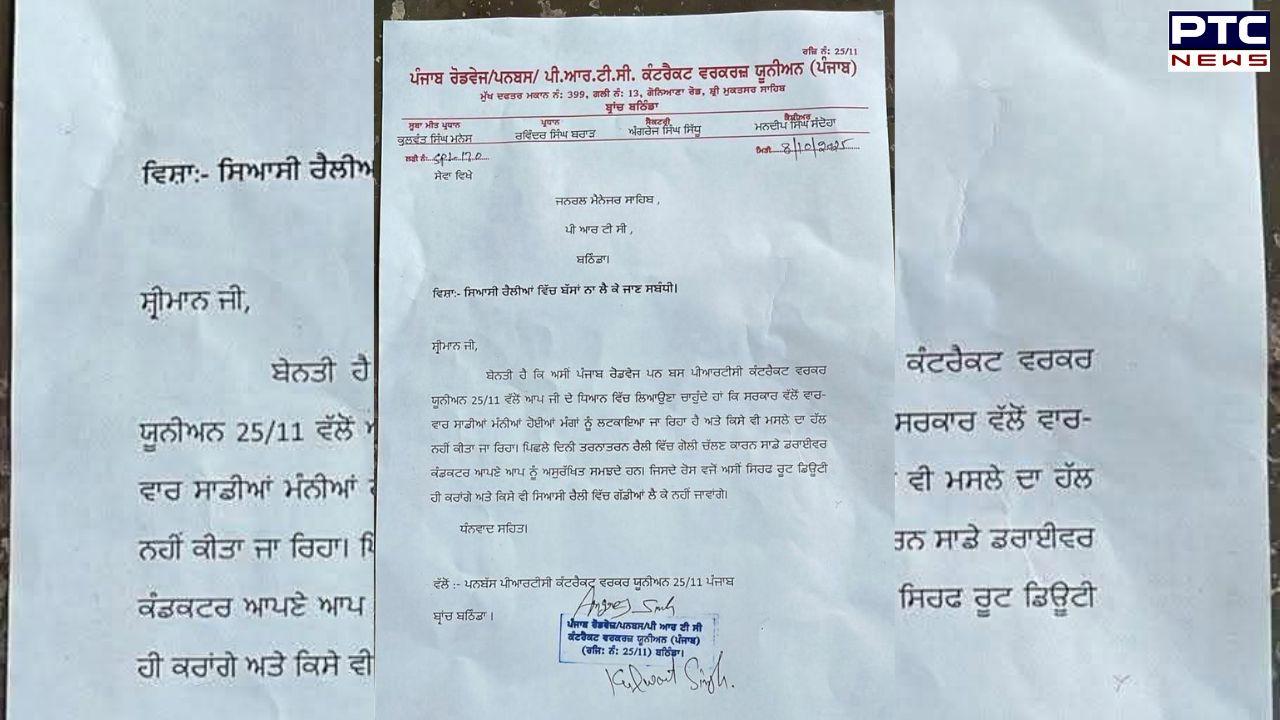 PTC
NEWS
ਰਜਿ ਨੰ: 25/11
ਪੰਜਾਬ ਰੋਡਵੇਜ/ਪਨਬਸ/ ਪੀ.ਆਰ.ਟੀ.ਸੀ. ਕੰਟਰੈਕਟ ਵਰਕਰਜ਼ ਯੂਨੀਅਨ (ਪੰਜਾਬ)
ਮੁੱਖ ਦਫਤਰ ਮਕਾਨ ਨੰ: 399, ਗਲੀ ਨੰ: 13, ਗੋਨਿਆਣਾ ਰੋਡ, ਸ਼੍ਰੀ ਮੁਕਤਸਰ ਸਾਹਿਬ
ਬ੍ਰਾਂਚ ਬਠਿੰਡਾ
ਸੂਬਾ ਮੀਤ ਪ੍ਰਧਾਨ ਪ੍ਰਧਾਨ ਸੈਕਟਰੀ ਕੈਸ਼ੀਅਰ
ਕੁਲਵੰਤ ਸਿੰਘ ਮਨੇਸ ਰਵਿੰਦਰ ਸਿੰਘ ਬਰਾੜ ਅੰਗਰੇਜ ਸਿੰਘ ਸਿੱਧੂ ਮਨਦੀਪ ਸਿੰਘ ਸੰਦੋਹਾ
ਲੜੀ ਨੰ: SPL-170 ਮਿਤੀ 8/10/2025
ਸੇਵਾ ਵਿਖੇ
ਜਨਰਲ ਮੈਨੇਜਰ ਸਾਹਿਬ ,
ਪੀ ਆਰ ਟੀ ਸੀ ,
ਬਠਿੰਡਾ।
ਵਿਸ਼ਾ:- ਸਿਆਸੀ ਰੈਲੀਆਂ ਵਿੱਚ ਬੱਸਾਂ ਨਾ ਲੈ ਕੇ ਜਾਣ ਸਬੰਧੀ।
ਸ਼੍ਰੀਮਾਨ ਜੀ,
ਬੇਨਤੀ ਹੈ ਕਿ ਅਸੀਂ ਪੰਜਾਬ ਰੋਡਵੇਜ ਪਨ ਬਸ ਪੀਆਰਟੀਸੀ ਕੰਟਰੈਕਟ ਵਰਕਰ
ਯੂਨੀਅਨ 25/11 ਵੱਲੋਂ ਆਪ ਜੀ ਦੇ ਧਿਆਨ ਵਿੱਚ ਲਿਆਉਣਾ ਚਾਹੁੰਦੇ ਹਾਂ ਕਿ ਸਰਕਾਰ ਵੱਲੋਂ ਵਾਰ-
ਵਾਰ ਸਾਡੀਆਂ ਮੰਨੀਆਂ ਹੋਈਆਂ ਮੰਗਾਂ ਨੂੰ ਲਟਕਾਇਆ ਜਾ ਰਿਹਾ ਹੈ ਅਤੇ ਕਿਸੇ ਵੀ ਮਸਲੇ ਦਾ ਹੱਲ
ਨਹੀਂ ਕੀਤਾ ਜਾ ਰਿਹਾ। ਪਿਛਲੇ ਦਿਨੀ ਤਰਨਾਤਰਨ ਰੈਲੀ ਵਿੱਚ ਗੋਲੀ ਚੱਲਣ ਕਾਰਨ ਸਾਡੇ ਡਰਾਈਵਰ
ਕੰਡਕਟਰ ਆਪਣੇ ਆਪ ਨੂੰ ਅਸੁਰੱਖਿਤ ਸਮਝਦੇ ਹਨ। ਜਿਸਦੇ ਰੋਸ ਵਜੋਂ ਅਸੀਂ ਸਿਰਫ ਰੂਟ ਡਿਊਟੀ
ਹੀ ਕਰਾਂਗੇ ਅਤੇ ਕਿਸੇ ਵੀ ਸਿਆਸੀ ਰੈਲੀ ਵਿੱਚ ਗੱਡੀਆਂ ਲੈ ਕੇ ਨਹੀਂ ਜਾਵਾਂਗੇ।
ਧੰਨਵਾਦ ਸਹਿਤ।
ਵੱਲੋਂ :- ਪਨਬੱਸ ਪੀਆਰਟੀਸੀ ਕੰਟਰੈਕਟ ਵਰਕਰ ਯੂਨੀਅਨ 25/11 ਪੰਜਾਬ
ਬ੍ਰਾਂਚ ਬਠਿੰਡਾ ।
Angrej Singh
ਪੰਜਾਬ ਰੋਡਵੇਜ਼/ਪਨਬਸ/ਪੀ ਆਰ ਟੀ ਸੀ
ਕੰਟਰੈਕਟ ਵਰਕਰਜ਼ ਯੂਨੀਅਨ (ਪੰਜਾਬ)
(ਰਜਿ: ਨੰ: 25/11) ਬਠਿੰਡਾ।
Kulwant Singh.
ਵਿਸ਼ਾ:- ਸਿਆਸੀ ਰੈਲੀਆ
ਸ਼੍ਰੀਮਾਨ ਜੀ,
ਬੇਨਤੀ ਹੈ
ਯੂਨੀਅਨ 25/11 ਵੱਲੋਂ
ਵਾਰ ਸਾਡੀਆਂ ਮੰਨੀਆਂ
ਨਹੀਂ ਕੀਤਾ ਜਾ ਰਿਹਾ।
ਕੰਡਕਟਰ ਆਪਣੇ ਆਪ
ਹੀ ਕਰਾਂਗੇ ਅਤੇ ਕਿਸੇ ਵੀ
ਕੰਟਰੈਕਟ ਵਰਕਰ
ਸਰਕਾਰ ਵੱਲੋਂ ਵਾਰ-
ਵੀ ਮਸਲੇ ਦਾ ਹੱਲ
ਰਨ ਸਾਡੇ ਡਰਾਈਵਰ
ਸਿਰਫ ਰੂਟ ਡਿਊਟੀ